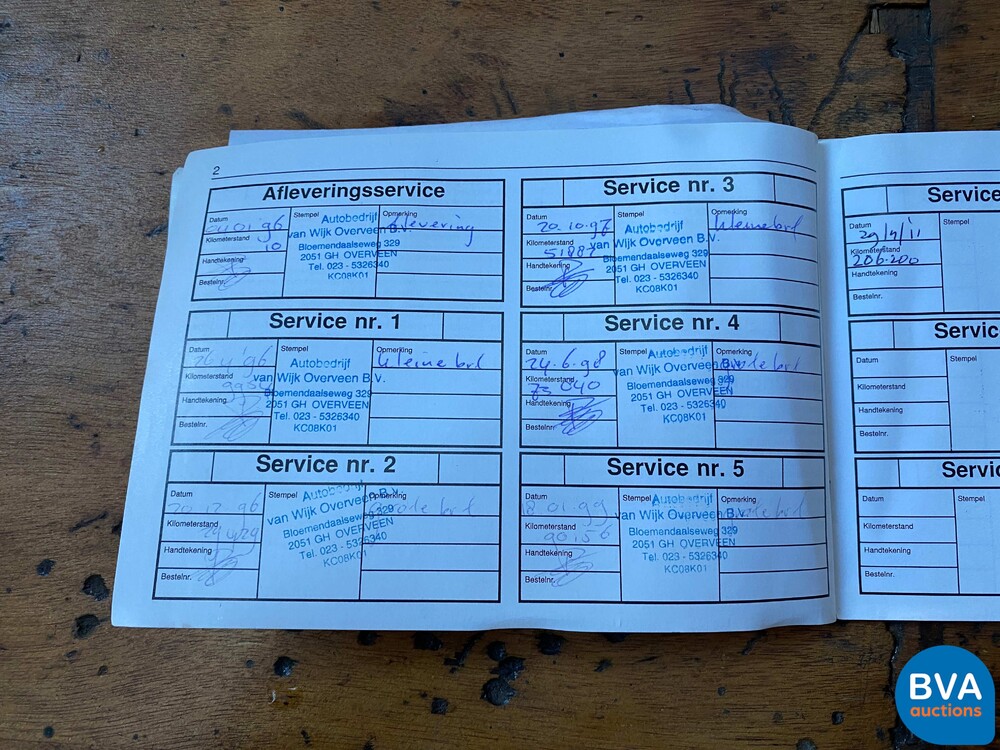 2
Afleveringsservice
Datum
01 96
Kilometerstand
10
Handtekening
Bestelnr.
Stempel
Autobedrijf
van Wijk Overveen B.V.
Bloemendaalseweg 329
2051 GH OVERVEEN
Tel. 023 - 5326340
KC08K01
Opmerking
Service nr. 1
Datum
96
Kilometerstand
Handtekening
Bestelnr.
Stempel
Autobedrijf
van Wijk Overveen B.V.
Bloemendaalseweg 329
2051 GH OVERVEEN
Tel. 023 - 5326340
KC08K01
Opmerking
kleine brt
Service nr. 2
Datum
20 12 96
Kilometerstand
Handtekening
Bestelnr.
Stempel
Autobedrijf
van Wijk Overveen B.V.
Bloemendaalseweg 329
2051 GH OVERVEEN
Tel. 023 - 5326340
KC08K01
Opmerking
Service nr. 3
Datum
20.10.97
Kilometerstand
Handtekening
Bestelnr.
Stempel
Autobedrijf
van Wijk Overveen B.V.
Bloemendaalseweg 329
2051 GH OVERVEEN
Tel. 023 - 5326340
KC08K01
Opmerking
kleine brt
Service nr. 4
Datum
24.6.98
Kilometerstand
Handtekening
Bestelnr.
Stempel
Autobedrijf
van Wijk Overveen B.V.
Bloemendaalseweg 329
2051 GH OVERVEEN
Tel. 023 - 5326340
KC08K01
Opmerking
Service nr. 5
Datum
18 01 99
Kilometerstand
90156
Handtekening
Bestelnr.
Stempel
Autobedrijf
van Wijk Overveen B.V.
Bloemendaalseweg 329
2051 GH OVERVEEN
Tel. 023 - 5326340
KC08K01
Opmerking
Service
Datum
Kilometerstand
206.200
Handtekening
Bestelnr.
Stempel
Servic
Datum
Kilometerstand
Handtekening
Bestelnr.
Stempel
Servic
Datum
Kilometerstand
Handtekening
Bestelnr.
Stempel
BVA
auctions